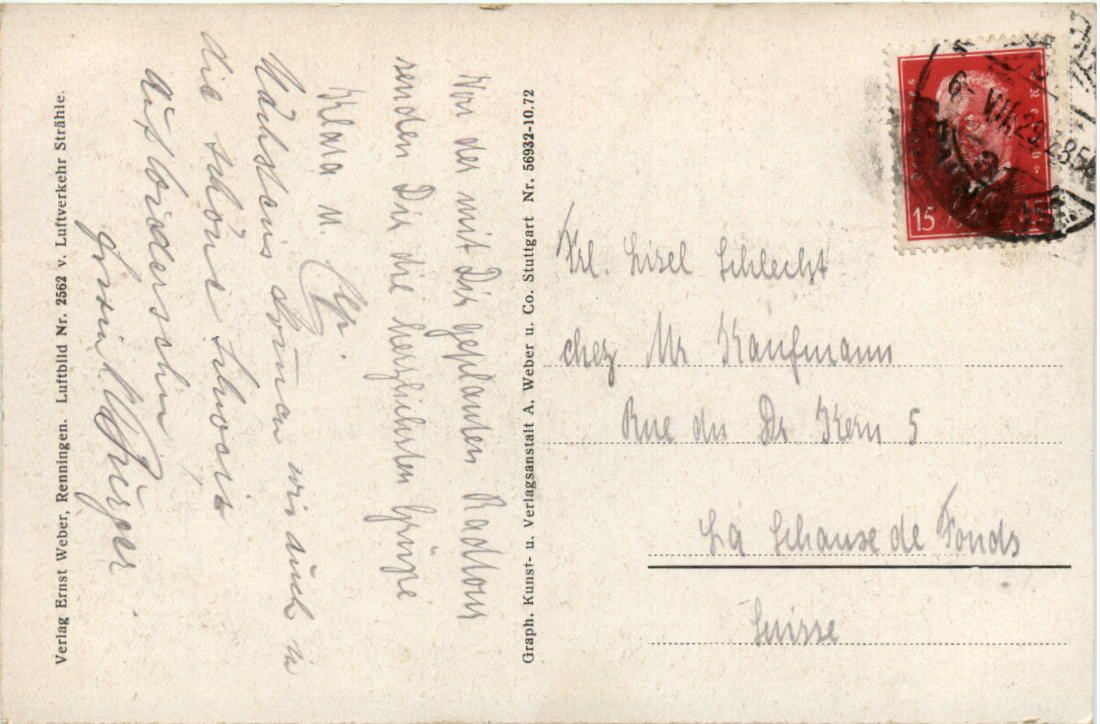 Von der mit Dir geplanten Radtour
senden Dir die herzlichsten Grüße
Klara u.
Nächstens kommen wir auch in
die schöne Schweiz
Auf Wiedersehn
Graph. Kunst- u. Verlagsanstalt A. Weber u. Co. Stuttgart Nr. 56932-10.72
Verlag Ernst Weber, Renningen. Luftbild Nr. 2562 v. Luftverkehr Strähle.
15
Frl. Lisel Schlecht
chez Mr Kaufmann
Rue du Dr Kern 5
La Schause de Fonds
Suisse